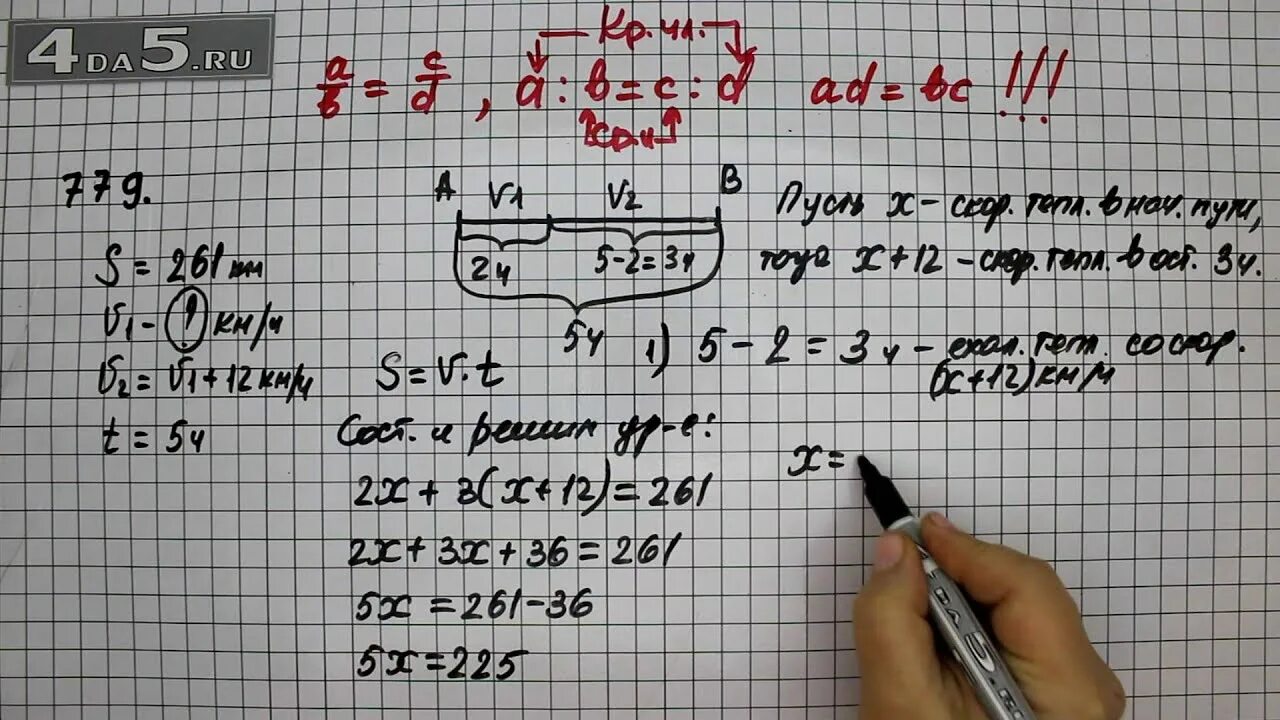 4DA5.RU
Кр. чл.
a/b = c/d , a : b = c : d ad = bc !!!
Ср. ч
779.
A V1 V2 B
2ч 5-2=3ч
5ч
S = 261 км
V1 - ? км/ч
V2 = V1 + 12 км/ч
t = 5ч
S = V · t
Пусть x - скор. тепл. в нач. пути,
тогда x + 12 - скор. тепл. в ост. 3ч.
1) 5 - 2 = 3 ч - ехал. тепл. со скор.
(x+12) км/ч
Сост. и решим ур-е:
2x + 3(x+12) = 261
2x + 3x + 36 = 261
5x = 261 - 36
5x = 225
x =
4DA5.RU